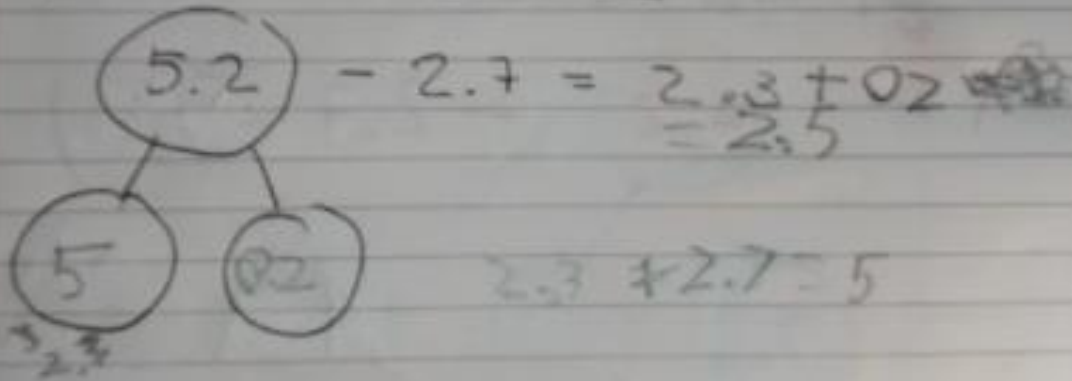 5.2 - 2.7 = 2.3 + 02
= 2.5
5 02
2.3 + 2.7 = 5